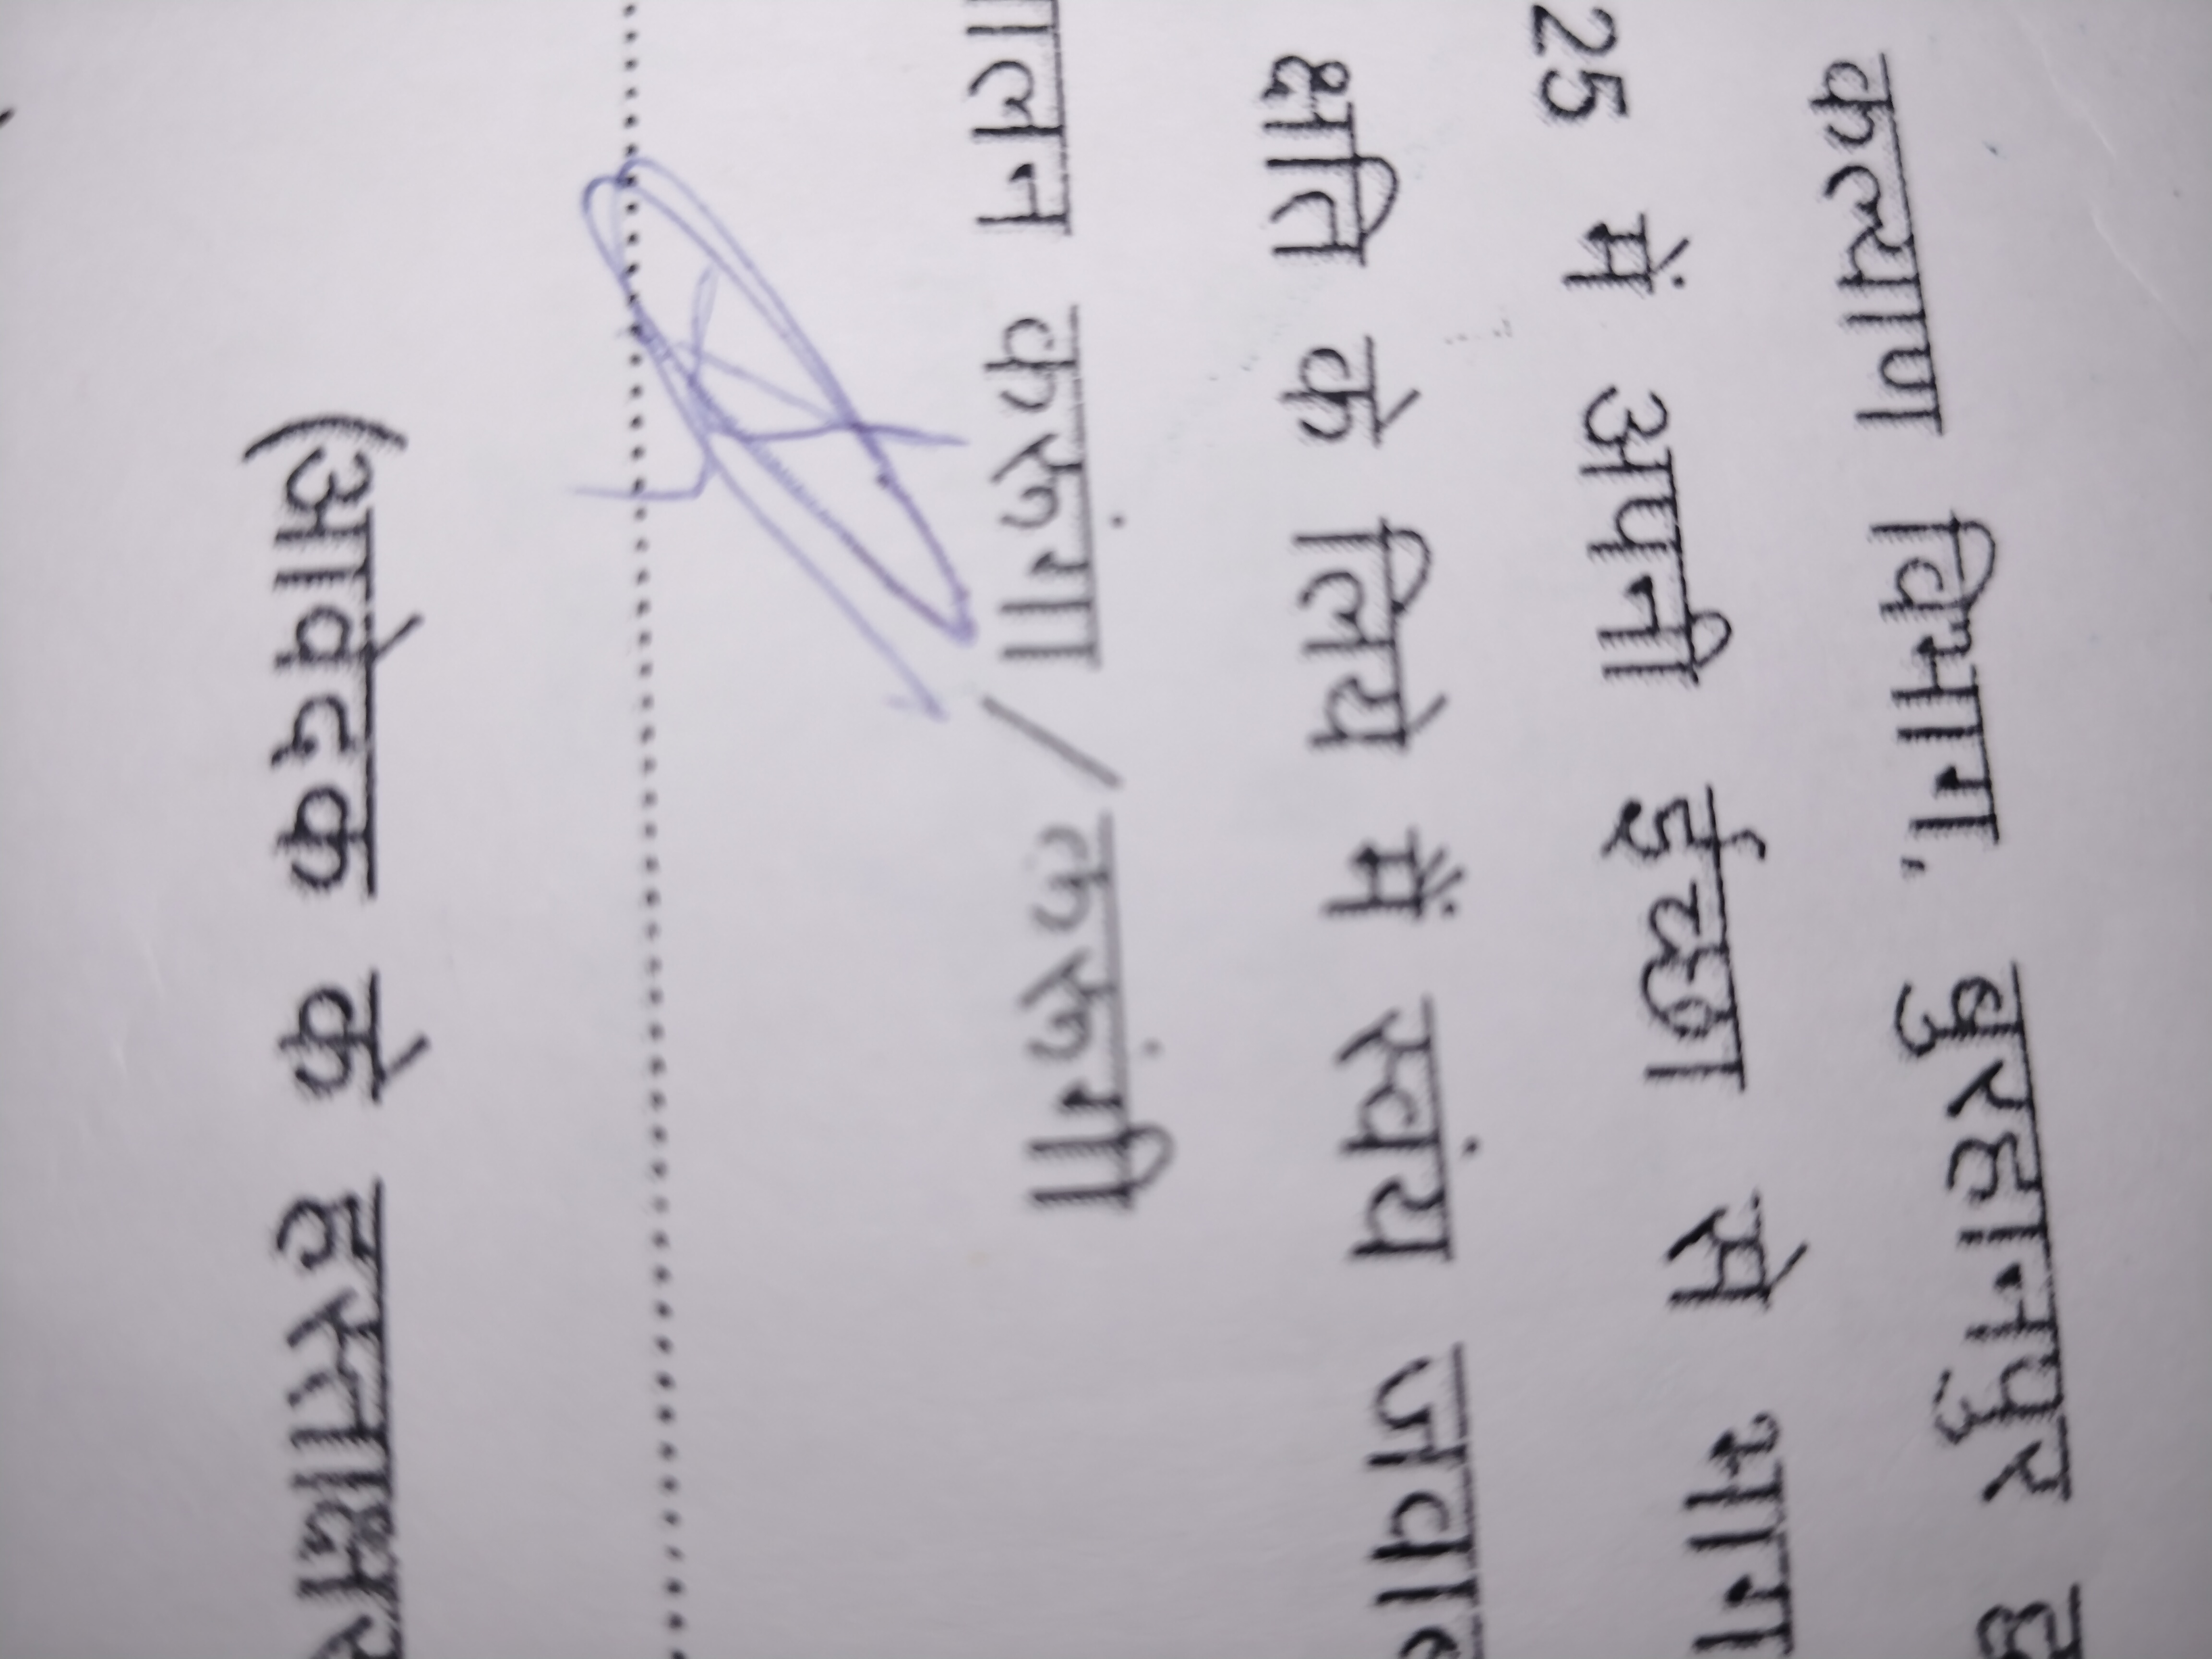 कल्याण विभाग, बुरहानपुर
25 में अपनी ईच्छा से भाग
क्षति के लिये मैं स्वंय
करूंगा / करूंगी
(आवेदक के हस्ताक्षर